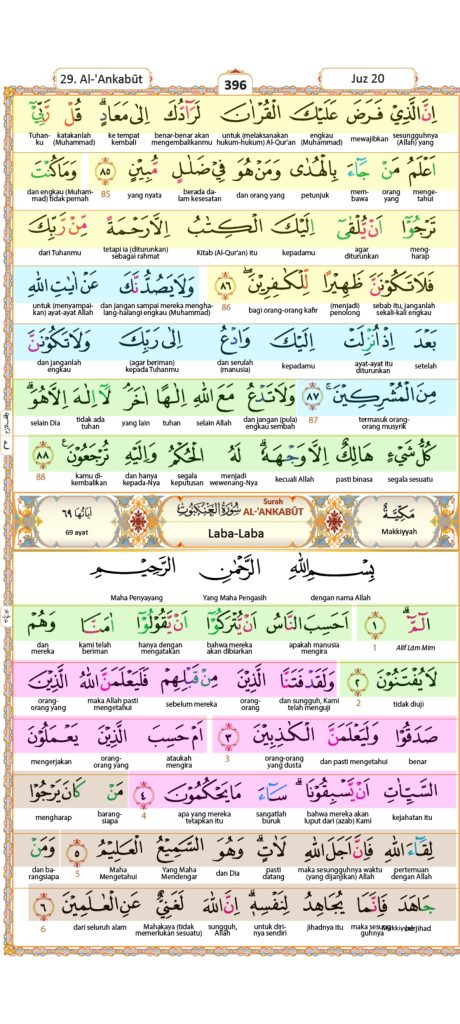 29. Al-'Ankabūt
396
Juz 20
اِنَّ الَّذِيْ فَرَضَ عَلَيْكَ الْقُرْاٰنَ لَرَاۤدُّكَ اِلٰى مَعَادٍ ۗ قُلْ رَّبِّيْٓ
sesungguhnya (Allah) yang mewajibkan engkau (Muhammad) untuk (melaksanakan hukum-hukum) Al-Qur'an benar-benar akan mengembalikanmu ke tempat kembali katakanlah (Muhammad) Tuhan-ku
اَعْلَمُ مَنْ جَاۤءَ بِالْهُدٰى وَمَنْ هُوَ فِيْ ضَلٰلٍ مُّبِيْنٍ ٨٥ وَمَا كُنْتَ
menge-tahui orang yang mem-bawa petunjuk dan orang yang berada da-lam kesesatan yang nyata 85 dan engkau (Muham-mad) tidak pernah
تَرْجُوْٓا اَنْ يُّلْقٰٓى اِلَيْكَ الْكِتٰبُ اِلَّا رَحْمَةً مِّنْ رَّبِّكَ
meng-harap agar diturunkan kepadamu Kitab (Al-Qur'an) itu tetapi ia (diturunkan) sebagai rahmat dari Tuhanmu
فَلَا تَكُوْنَنَّ ظَهِيْرًا لِّلْكٰفِرِيْنَ ۖ ٨٦ وَلَا يَصُدُّنَّكَ عَنْ اٰيٰتِ اللّٰهِ
sebab itu, janganlah sekali-kali engkau (menjadi) penolong bagi orang-orang kafir 86 dan jangan sampai mereka mengha-lang-halangi engkau (Muhammad) untuk (menyampai-kan) ayat-ayat Allah
بَعْدَ اِذْ اُنْزِلَتْ اِلَيْكَ وَادْعُ اِلٰى رَبِّكَ وَلَا تَكُوْنَنَّ
setelah ayat-ayat itu diturunkan kepadamu dan serulah (manusia) (agar beriman) kepada Tuhanmu dan janganlah engkau
مِنَ الْمُشْرِكِيْنَ ۚ ٨٧ وَلَا تَدْعُ مَعَ اللّٰهِ اِلٰهًا اٰخَرَ ۘ لَآ اِلٰهَ اِلَّا هُوَ ۗ
termasuk orang-orang musyrik 87 dan jangan (pula) engkau sembah selain Allah tuhan yang lain tidak ada tuhan selain Dia
كُلُّ شَيْءٍ هَالِكٌ اِلَّا وَجْهَهٗ ۗ لَهُ الْحُكْمُ وَاِلَيْهِ تُرْجَعُوْنَ ࣖ ٨٨
segala sesuatu pasti binasa kecuali Allah menjadi wewenang-Nya segala keputusan dan hanya kepada-Nya kamu di-kembalikan 88
مَكِّيَّةٌ سُوْرَةُ الْعَنْكَبُوْتِ اٰيَاتُهَا ٦٩
Surah AL-'ANKABŪT
Makkiyyah Laba-Laba 69 ayat
بِسْمِ اللّٰهِ الرَّحْمٰنِ الرَّحِيْمِ
dengan nama Allah Yang Maha Pengasih Maha Penyayang
الۤمّۤ ۗ ١ اَحَسِبَ النَّاسُ اَنْ يُّتْرَكُوْٓا اَنْ يَّقُوْلُوْٓا اٰمَنَّا وَهُمْ
Alif Lām Mim 1 apakah manusia mengira bahwa mereka akan dibiarkan hanya dengan mengatakan kami telah beriman dan mereka
لَا يُفْتَنُوْنَ ٢ وَلَقَدْ فَتَنَّا الَّذِيْنَ مِنْ قَبْلِهِمْ فَلَيَعْلَمَنَّ اللّٰهُ الَّذِيْنَ
tidak diuji 2 dan sungguh, Kami telah menguji orang-orang sebelum mereka maka Allah pasti mengetahui orang-orang yang
صَدَقُوْا وَلَيَعْلَمَنَّ الْكٰذِبِيْنَ ٣ اَمْ حَسِبَ الَّذِيْنَ يَعْمَلُوْنَ
benar dan pasti mengetahui orang-orang yang dusta 3 ataukah mengira orang-orang yang mengerjakan
السَّيِّاٰتِ اَنْ يَّسْبِقُوْنَا ۗ سَاۤءَ مَا يَحْكُمُوْنَ ٤ مَنْ كَانَ يَرْجُوْا
kejahatan itu bahwa mereka akan luput dari (azab) Kami sangatlah buruk apa yang mereka tetapkan itu 4 barang-siapa mengharap
لِقَاۤءَ اللّٰهِ فَاِنَّ اَجَلَ اللّٰهِ لَاٰتٍ ۗ وَهُوَ السَّمِيْعُ الْعَلِيْمُ ٥ وَمَنْ
pertemuan dengan Allah maka sesungguhnya waktu (yang dijanjikan) Allah pasti datang dan Dia Yang Maha Mendengar Maha Mengetahui 5 dan ba-rangsiapa
جَاهَدَ فَاِنَّمَا يُجَاهِدُ لِنَفْسِهٖ ۗ اِنَّ اللّٰهَ لَغَنِيٌّ عَنِ الْعٰلَمِيْنَ ٦
berjihad maka sesung-guhnya jihadnya itu untuk diri-nya sendiri sungguh, Allah Mahakaya (tidak memerlukan sesuatu) dari seluruh alam 6